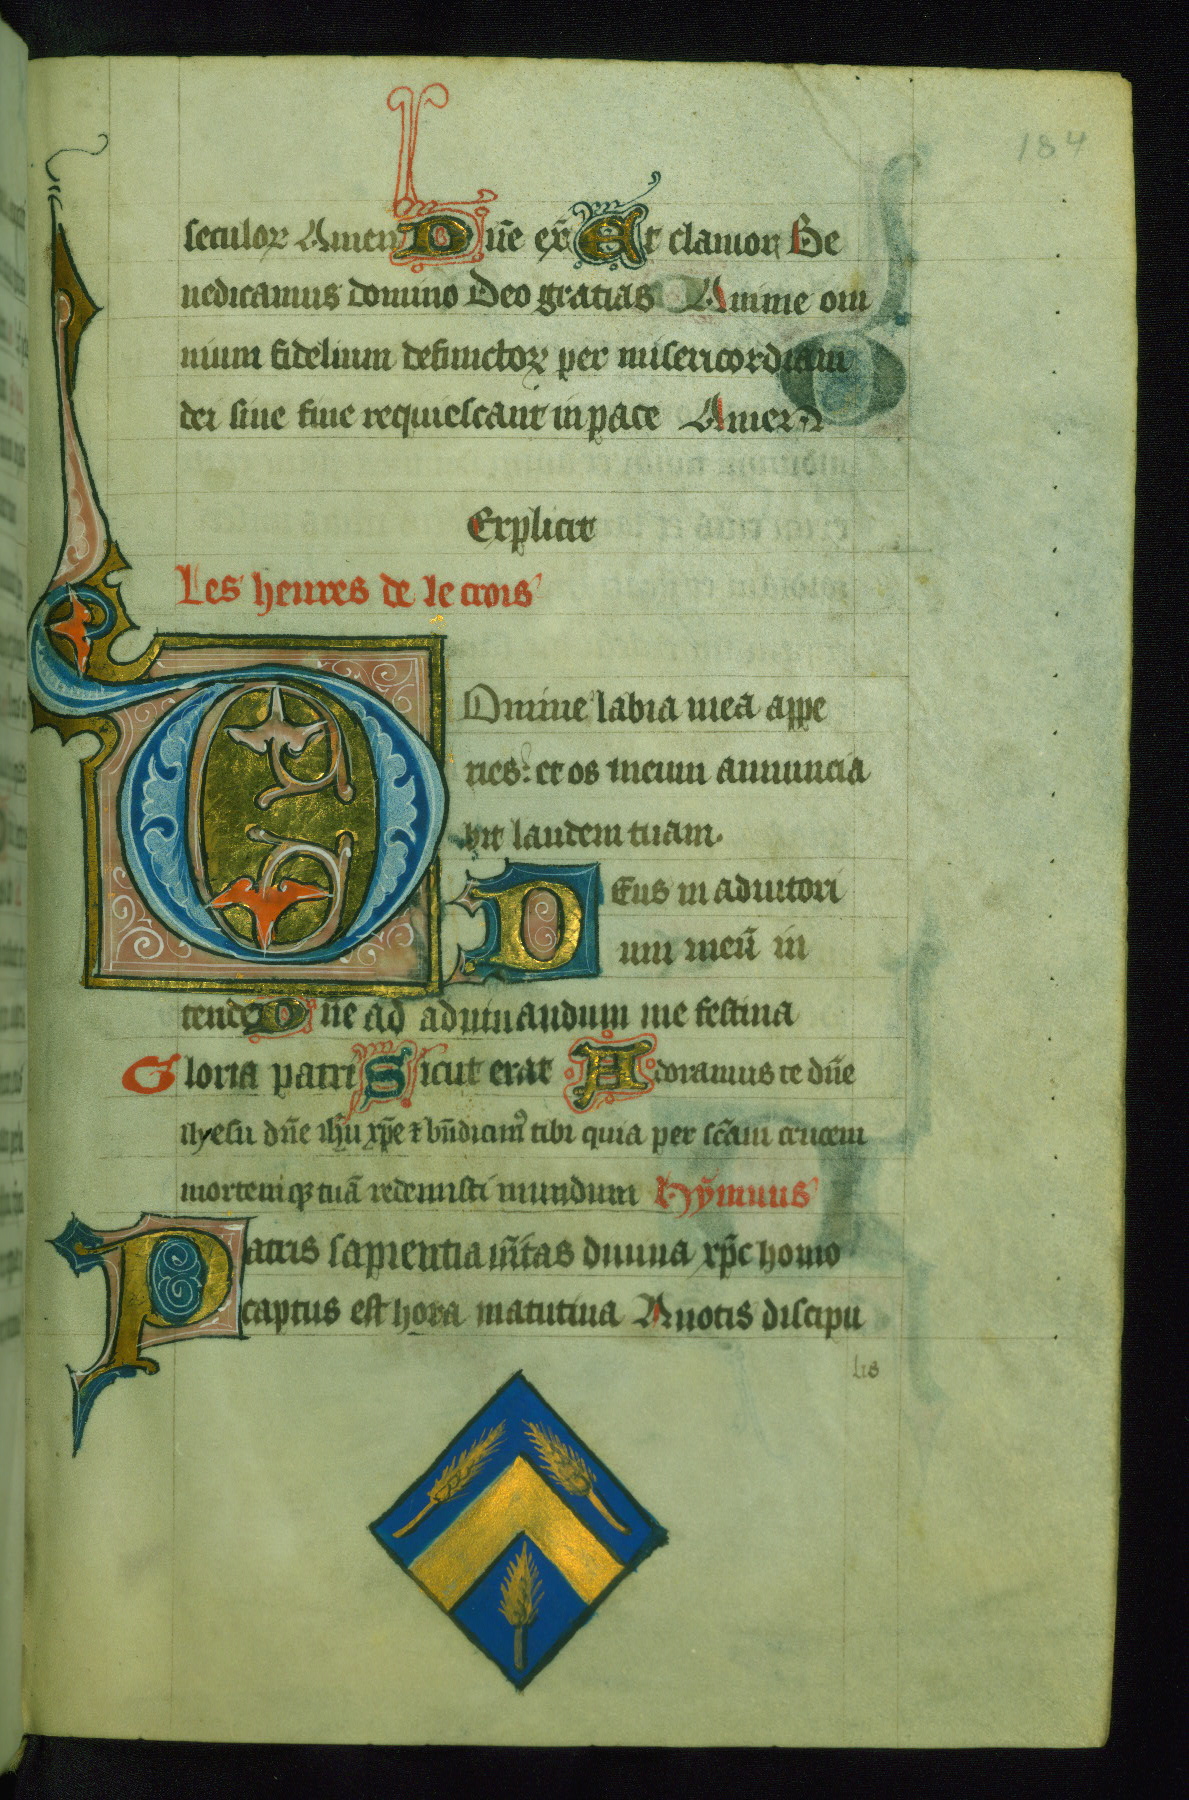 184
seculoꝝ Amen Dñe ex̃ Et clamor Be
nedicamus domino Deo gratias Anime om
nium fidelium defunctoꝝ per misericordiam
dei sine fine requiescant in pace Amen
Explicit
Les heures de le crois
Domine labia mea appe
ries: et os meum annuncia
bit laudem tuam
Deus in adiutori
um meū in
tende Dñe ad adiuuandum me festina
Gloria patri Sicut erat Adoramus te dñe
dñe ihū xp̄e ⁊ bn̄dicimꝰ tibi quia per sc̄am crucem
mortemqꝫ tuā redemisti mundum Hȳmnus
Patris sapientia ūitas diuina xp̄c homo
captus est hora matutina A notis discipu
lis